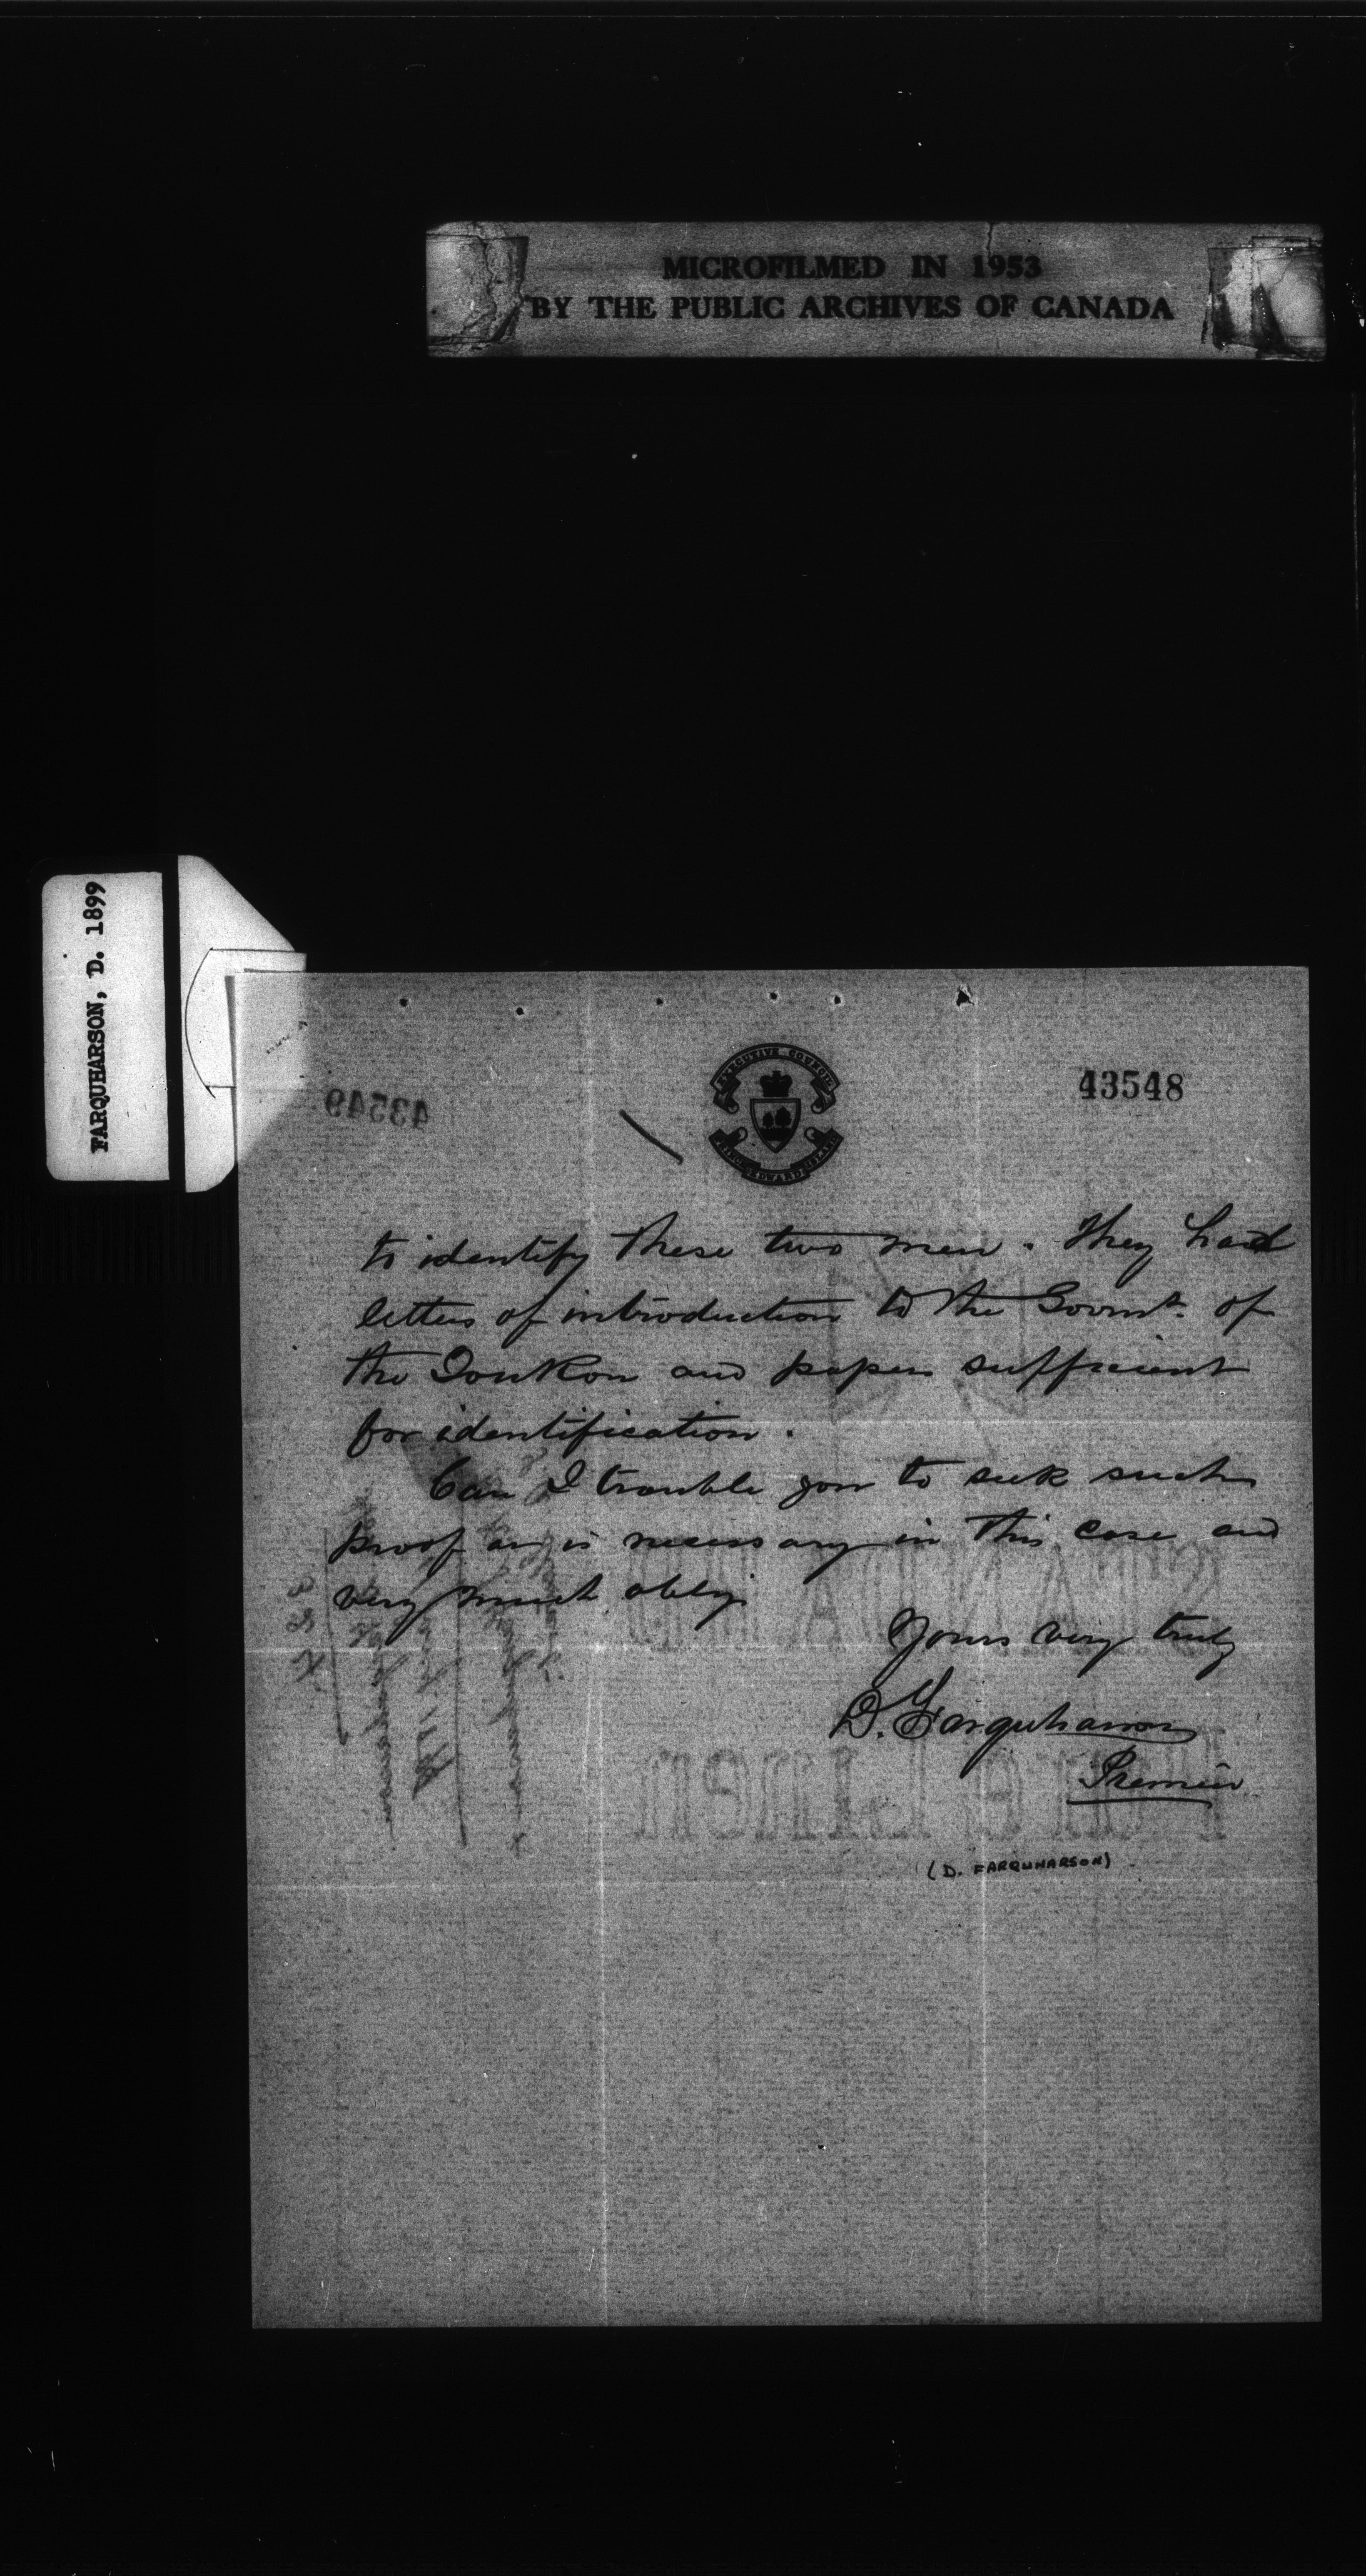 MICROFILMED IN 1953
BY THE PUBLIC ARCHIVES OF CANADA
FARQUHARSON, D. 1899
EXECUTIVE COUNCIL
PRINCE EDWARD ISLAND
43548
43549
to identify these two men. They had
letters of introduction to the Govmt. of
the Youkon and papers sufficient
for identification.
Can I trouble you to seek such
proof as is necessary in this case and
very much oblige
Yours very truly
D. Farquharson
Premier
(D. FARQUHARSON)